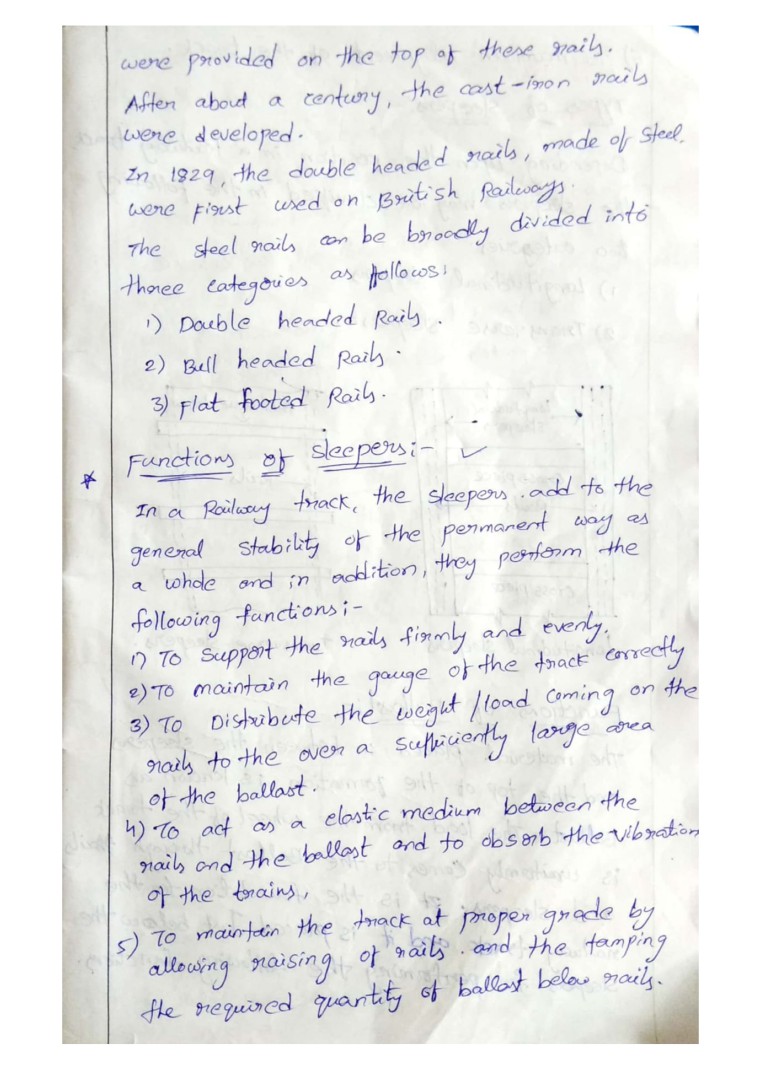 were provided on the top of these rails.
After about a century, the cast-iron rails
were developed.
In 1829, the double headed rails, made of Steel.
were first used on British Railways.
The steel rails can be broadly divided into
three categories as follows:
1) Double headed Rails.
2) Bull headed Rails.
3) Flat footed Rails.
* Functions of sleepers:- ✓
In a Railway track, the sleepers. add to the
general stability of the permanent way as
a whole and in addition, they perform the
following functions:-
1) To Support the rails firmly and evenly.
2) To maintain the gauge of the track correctly
3) To Distribute the weight/load coming on the
rails to the over a sufficiently large area
of the ballast.
4) To act as a elastic medium between the
rails and the ballast and to absorb the vibration
of the trains,
5) To maintain the track at proper grade by
allowing raising of rails. and the tamping
the required quantity of ballast below rails.